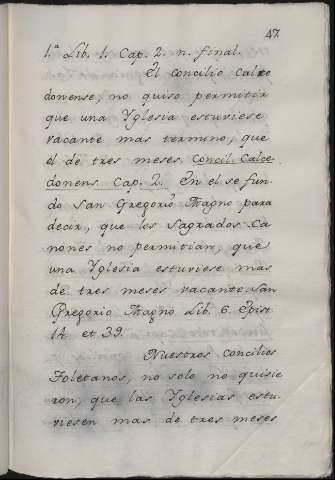 47
1.ª Lib. 1. Cap. 2. n. final.
El Concilio Calce
donense, no quiso permitir
que una Yglesia estuviese
vacante mas termino, que
el de tres meses Concil. Calce-
donens. Cap. 2. En el se fun-
do San Gregorio Magno para
decir, que los Sagrados Ca
nones no permitian, que
una Yglesia estuviese mas
de tres meses vacante San
Gregorio Magno Lib. 6. Epist.
14. et 39.
Nuestros Concilios
Toletanos, no solo no quisie
ron, que las Yglesias estu-
viesen mas de tres meses